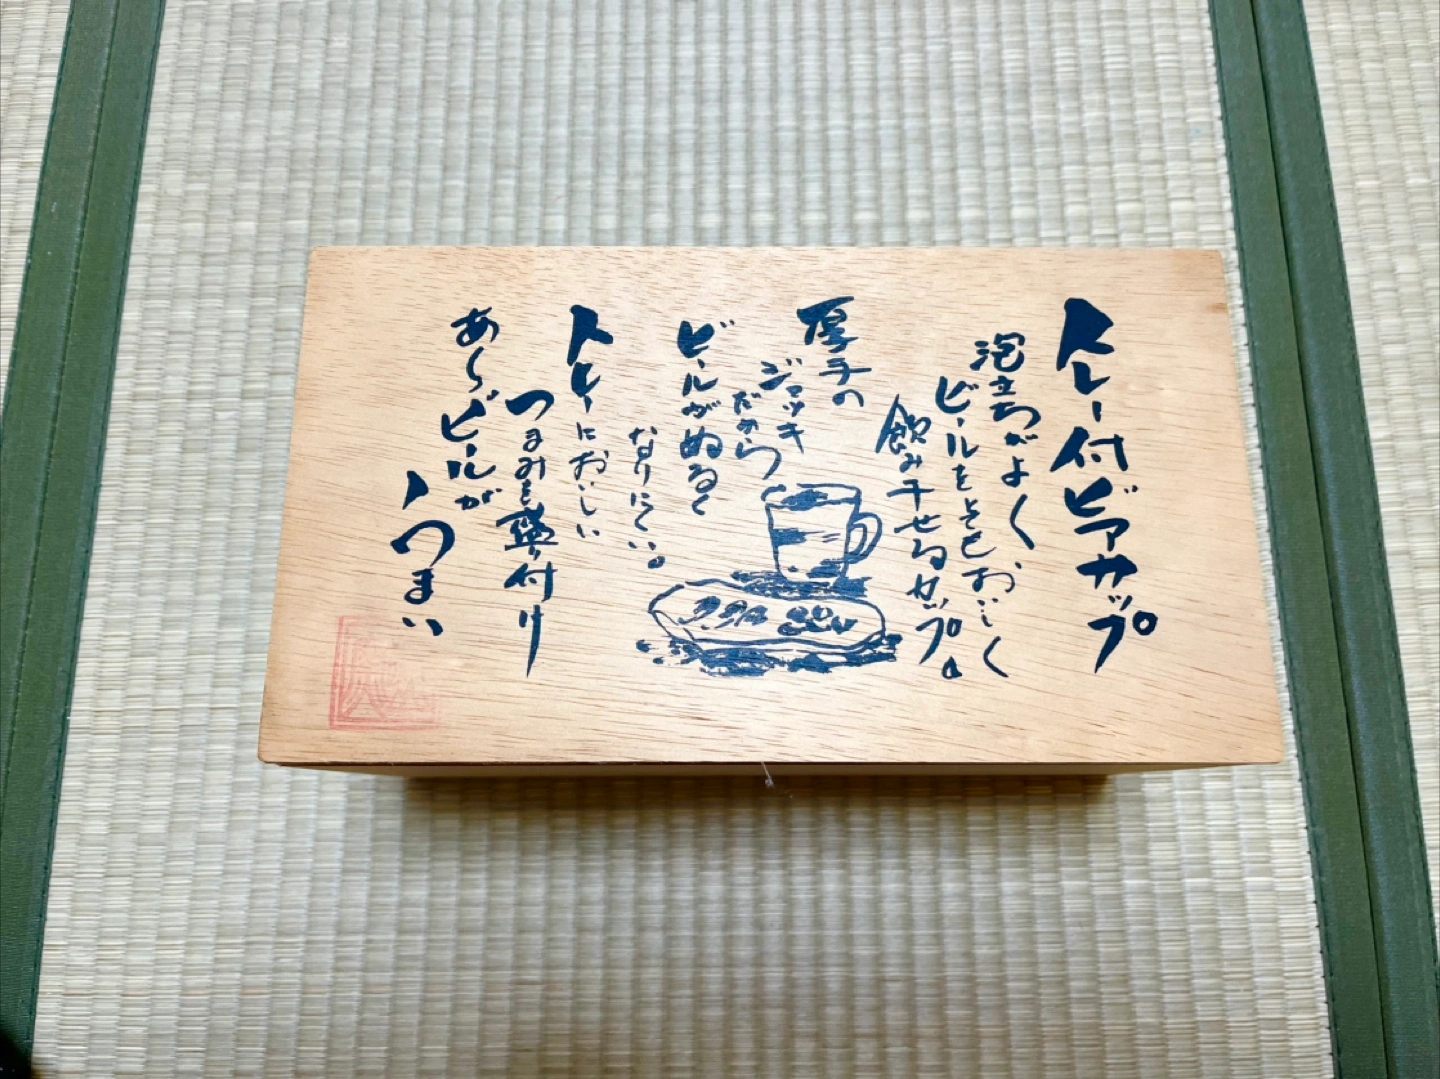 トレー付ビアカップ
泡立ちがよくおいしく
ビールをとてもおいしく
飲み干せるカップ。
厚手の
ジョッキ
だから
ビールがぬるく
なりにくい。
トレーにおいしい
つまみを盛り付け
あ〜ビールが
うまい